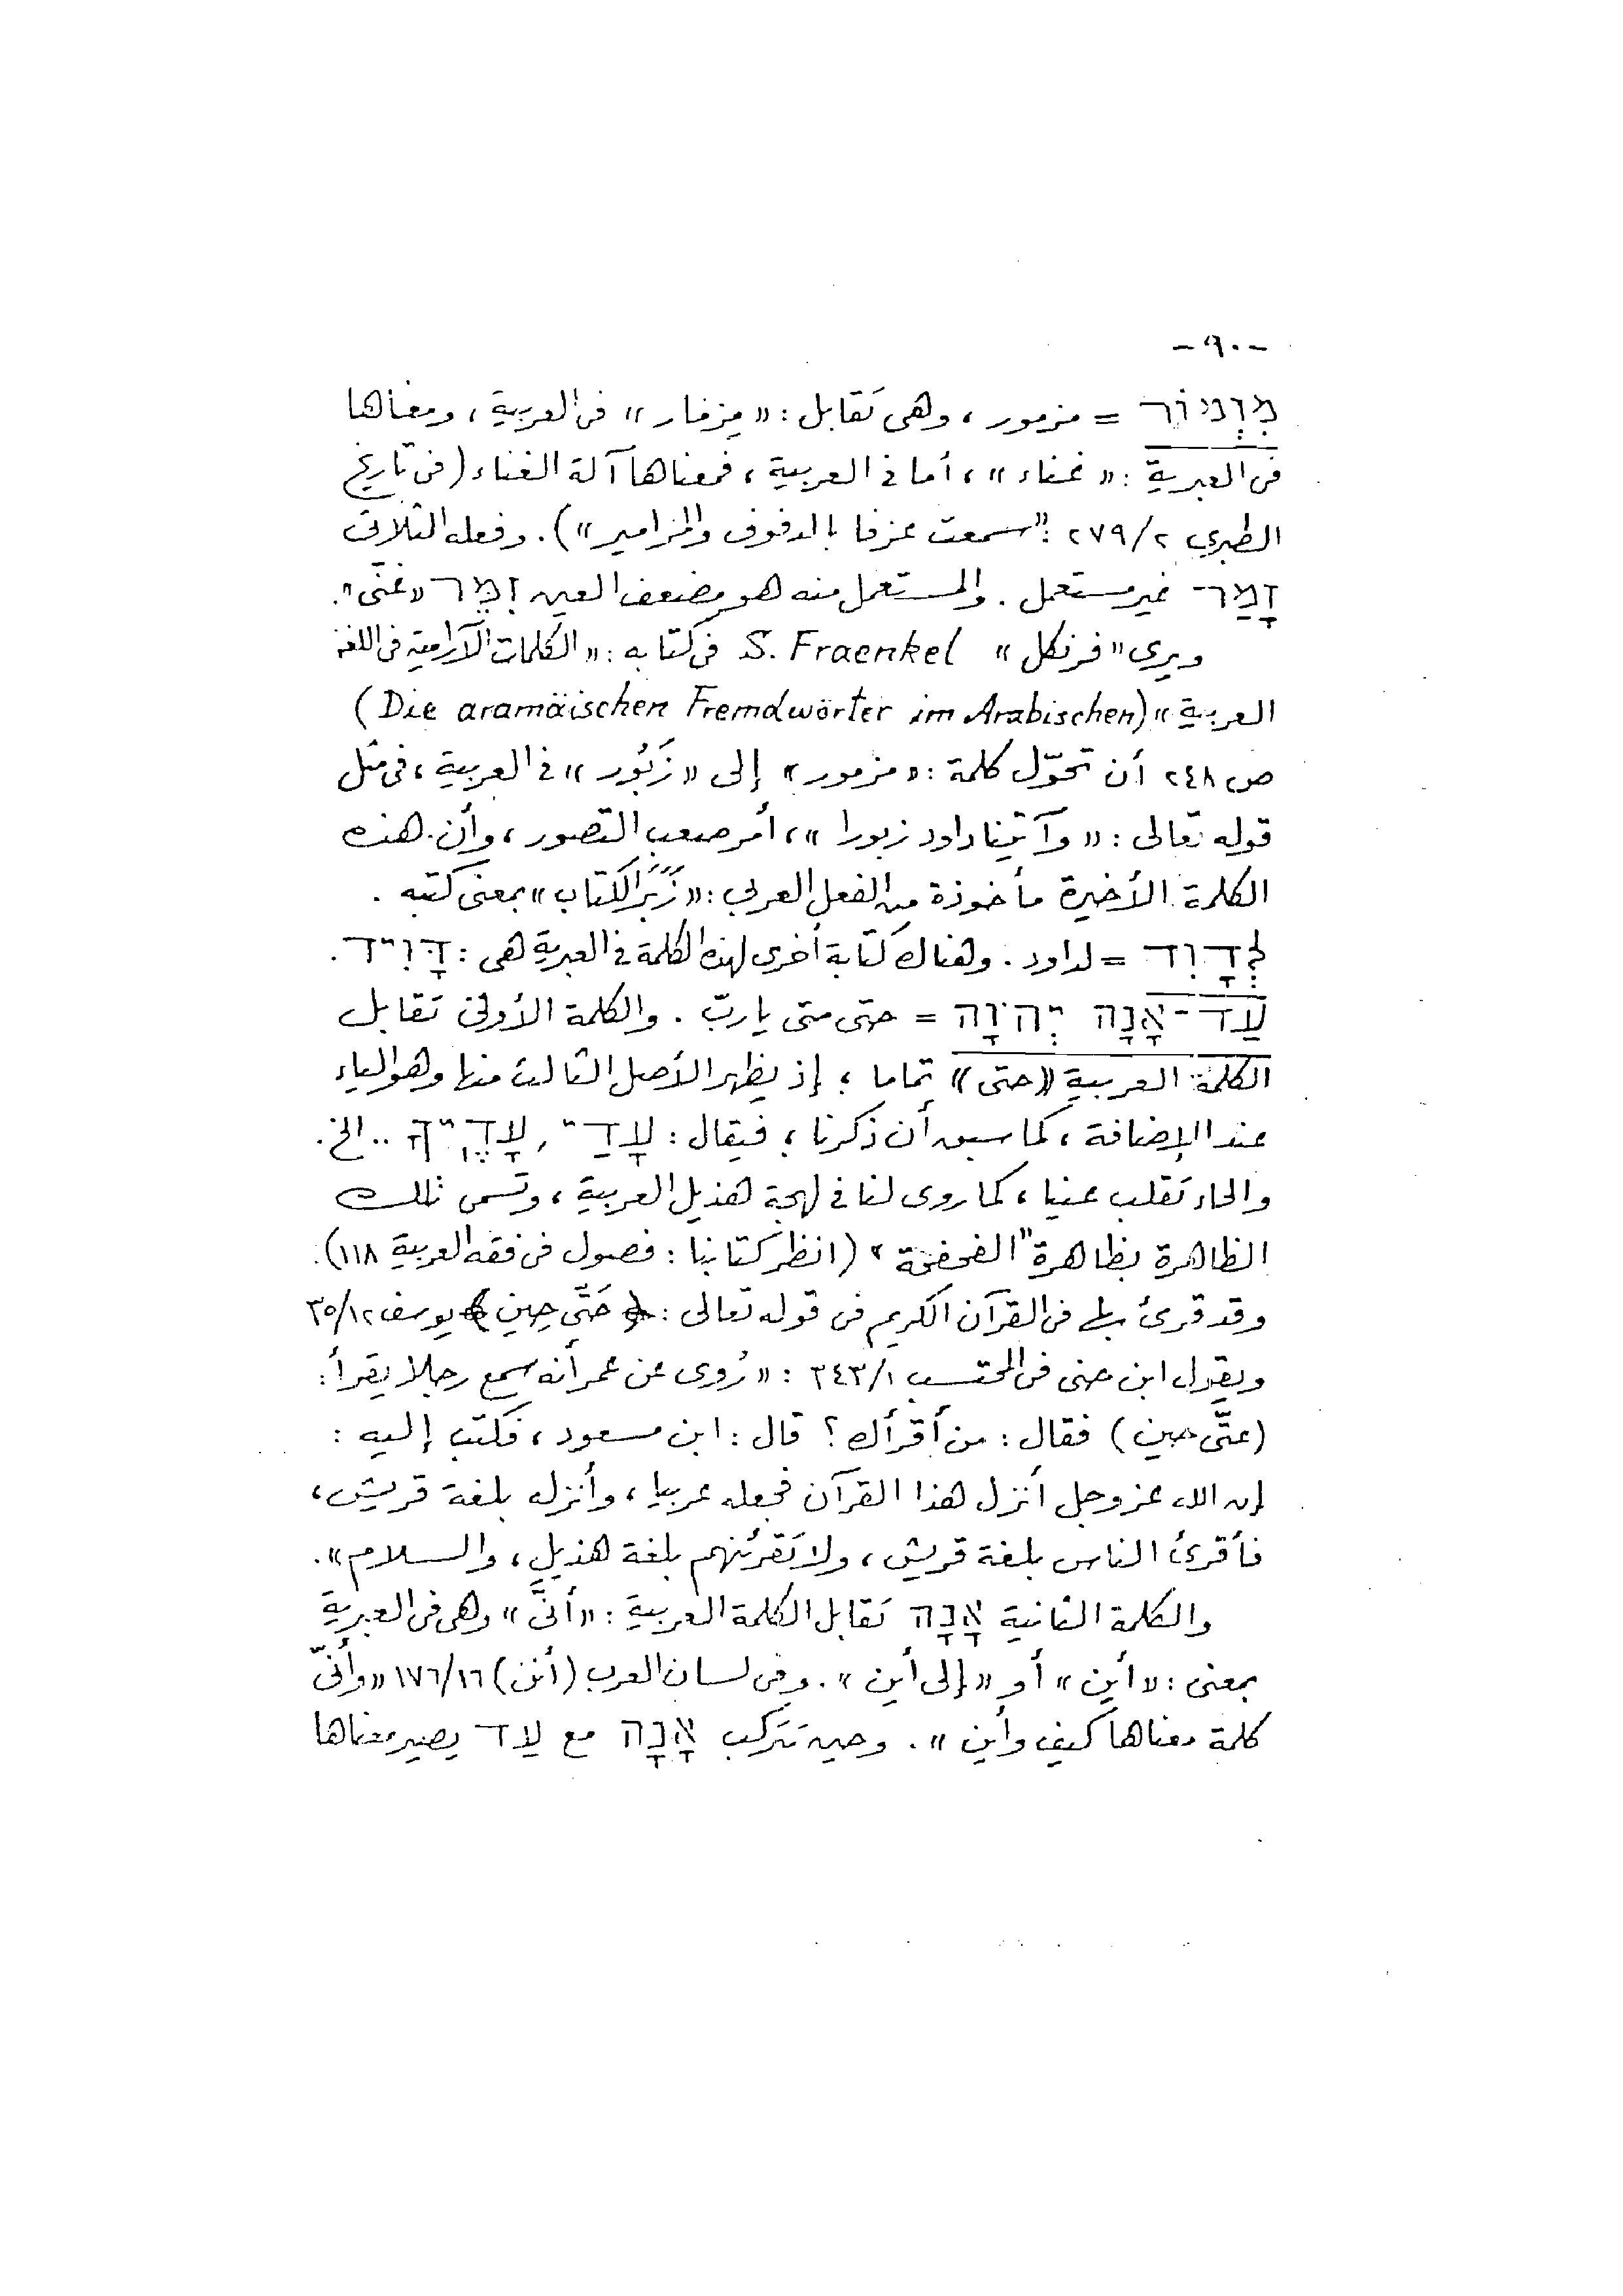 -٩٠-
מִזְמוֹר = مزمور ، وهى تَقابل : « مِزمار » فى العربية ، ومعناها
فى العبرية : « غناء » ، أما فى العربية ، فمعناها آلة الغناء ( فى تاريخ
الطبري ٢٧٩/٢ : « سمعت عزفا بالدفوف والمزامير » ) . وفعله الثلاثى
זָמַר غير مستعمل . والمستعمل منه هو مضعف العين זִמֵּר « غنَّى » .
ويرى « فرنكل » S. Fraenkel فى كتابه : « الكلمات الآرامية فى اللغة
العربية » (Die aramäischen Fremdwörter im Arabischen)
ص ٢٤٨ أن تحوّل كلمة : « مزمور » إلى « زَبُور » فى العربية ، فى مثل
قوله تعالى : « وآتينا داود زبورا » ، أمر صعب التصور ، وأن هذه
الكلمة الأخيرة مأخوذة من الفعل العربي : « زَبَرَ الكتاب » بمعنى كتبه .
לְדָוִד = لداود . وهناك كتابة أخرى لهذه الكلمة فى العبرية هى : דָּוִיד .
עַד-אָנָה יְהוָֹה = حتى متى يا ربّ . والكلمة الأولى تَقابل
الكلمة العربية « حتى » تماما ؛ إذ يظهر الأصل الثالث منها وهو الياء
عند الإضافة ، كما سبق أن ذكرنا ؛ فيقال : עָדַי , עָדֶיךָ .. الخ .
والحاء تقلب عينا ، كما روى لنا فى لهجة هذيل العربية ، وتسمى تلك
الظاهرة بظاهرة « الفحفحة » ( انظر كتابنا : فصول فى فقه العربية ١١٨ ) .
وقد قرئ بها فى القرآن الكريم فى قوله تعالى : ﴿ حَتَّى حِينٍ ﴾ يوسف ٣٥/١٢
ويقول ابن جنى فى المحتسب ٣٤٣/١ : « رُوى عن عمر أنه سمع رجلا يقرأ :
( عتَّى حين ) فقال : من أقرأك ؟ قال : ابن مسعود ، فكتب إليه :
إن الله عز وجل أنزل هذا القرآن فجعله عربيا ، وأنزله بلغة قريش ،
فأقرئ الناس بلغة قريش ، ولا تَقرئهم بلغة هذيل ، والسلام » .
والكلمة الثانية אָנָה تَقابل الكلمة العربية : « أنَّى » وهى فى العبرية
بمعنى : « أين » أو « إلى أين » . وفى لسان العرب ( أنن ) ١٧٦/١٦ « وأنّى
كلمة معناها كيف وأين » . وحين تَتركب אָנָה مع עַד يصير معناها